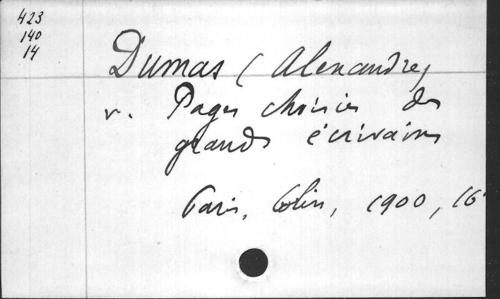 423
140
14
Dumas (Alexandre)
v. Pages choisies des
grands écrivains
Paris, Colin, 1900, 16°